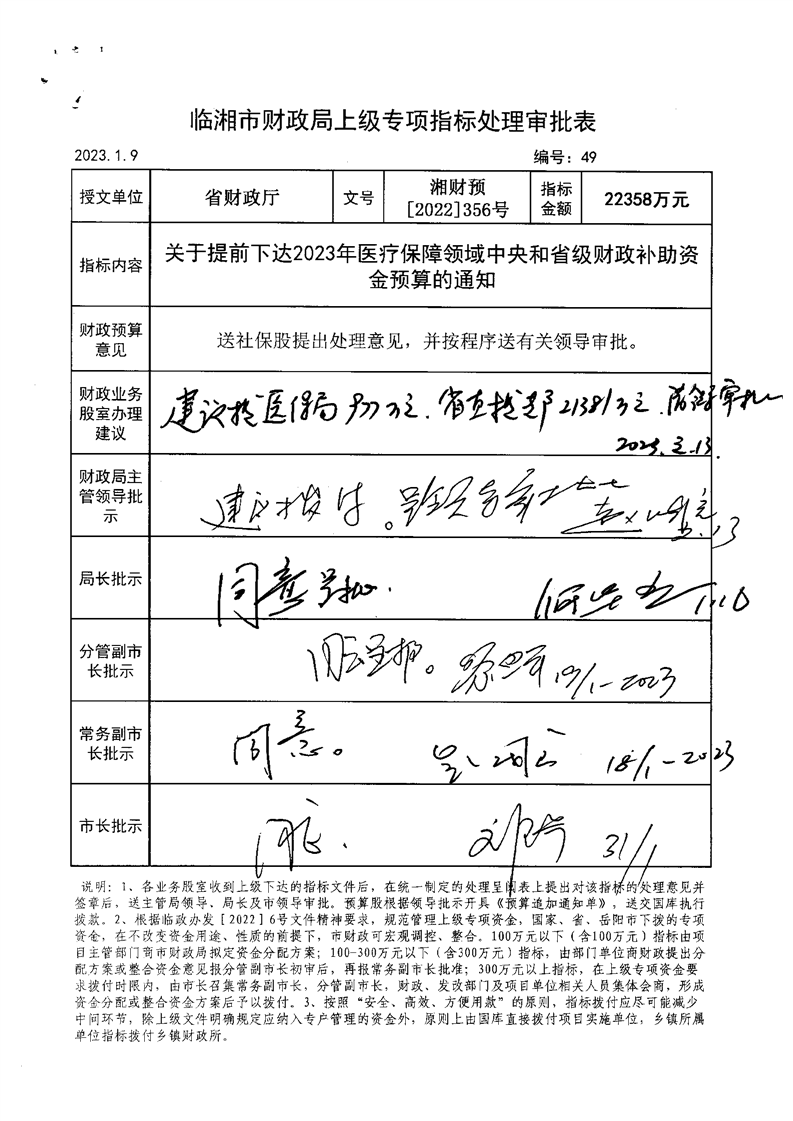 临湘市财政局上级专项指标处理审批表
2023.1.9 编号：49
授文单位 省财政厅 文号 湘财预[2022]356号 指标金额 22358万元
指标内容 关于提前下达2023年医疗保障领域中央和省级财政补助资
金预算的通知
财政预算
意见
送社保股提出处理意见，并按程序送有关领导审批。
财政业务
股室办理
建议
建议拨医保局977万元．省直拨专户21381万元．
财政局主
管领导批
示
建议拨付。
局长批示
同意呈批．
分管副市
长批示
19/1-2023
常务副市
长批示
同意。
18/1-2023
市长批示
同意．
31/1
说明：1、各业务股室收到上级下达的指标文件后，在统一制定的处理呈阅表上提出对该指标的处理意见并
签章后，送主管局领导、局长及市领导审批。预算股根据领导批示开具《预算追加通知单》，送交国库执行
拨款。2、根据临政办发[2022]6号文件精神要求，规范管理上级专项资金，国家、省、岳阳市下拨的专项
资金，在不改变资金用途、性质的前提下，市财政可宏观调控、整合。100万元以下（含100万元）指标由项
目主管部门商市财政局拟定资金分配方案；100-300万元以下（含300万元）指标，由部门单位商财政提出分
配方案或整合资金意见报分管副市长初审后，再报常务副市长批准；300万元以上指标，在上级专项资金要
求拨付时限内，由市长召集常务副市长，分管副市长，财政、发改部门及项目单位相关人员集体会商，形成
资金分配或整合资金方案后予以拨付。3、按照“安全、高效、方便用款”的原则，指标拨付应尽可能减少
中间环节，除上级文件明确规定应纳入专户管理的资金外，原则上由国库直接拨付项目实施单位，乡镇所属
单位指标拨付乡镇财政所。